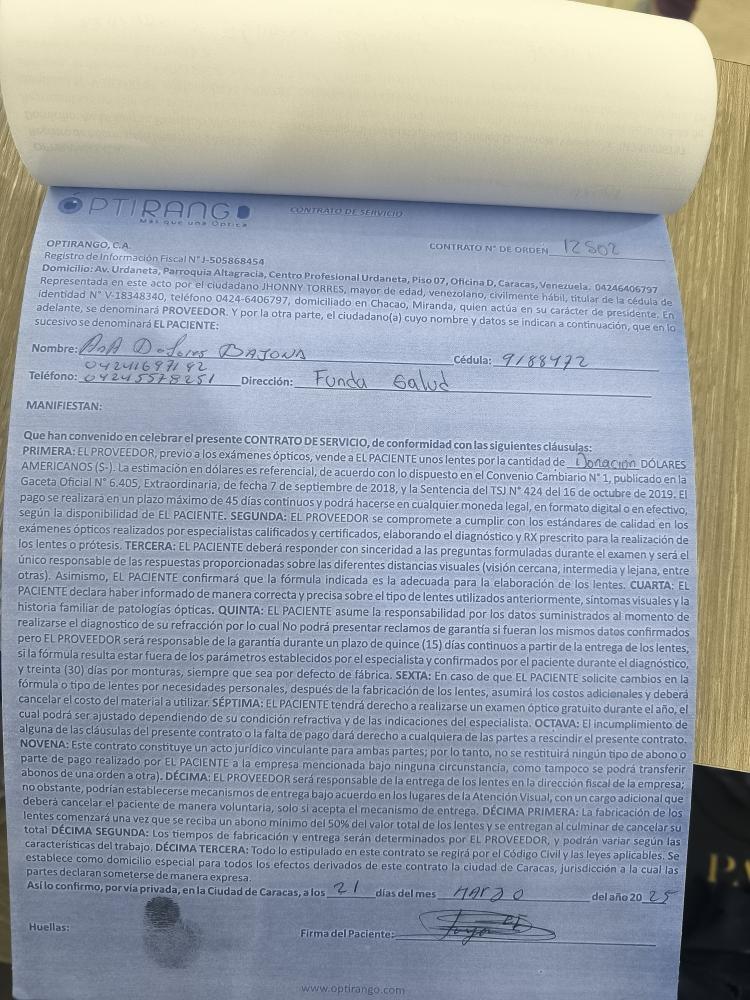 OPTIRANGO
Más que una Óptica
CONTRATO DE SERVICIO
OPTIRANGO, C.A.
CONTRATO N° DE ORDEN 12502
Registro de Información Fiscal N° J-505868454
Domicilio: Av. Urdaneta, Parroquia Altagracia, Centro Profesional Urdaneta, Piso 07, Oficina D, Caracas, Venezuela. 04246406797
Representada en este acto por el ciudadano JHONNY TORRES, mayor de edad, venezolano, civilmente hábil, titular de la cédula de
identidad N° V-18348340, teléfono 0424-6406797, domiciliado en Chacao, Miranda, quien actúa en su carácter de presidente. En
adelante, se denominará PROVEEDOR. Y por la otra parte, el ciudadano(a) cuyo nombre y datos se indican a continuación, que en lo
sucesivo se denominará EL PACIENTE:
Nombre: Ana Dolores BAJONA Cédula: 9188472
04241697192
Teléfono: 04245578251 Dirección: Funda Salud
MANIFIESTAN:
Que han convenido en celebrar el presente CONTRATO DE SERVICIO, de conformidad con las siguientes cláusulas:
PRIMERA: EL PROVEEDOR, previo a los exámenes ópticos, vende a EL PACIENTE unos lentes por la cantidad de Donación DÓLARES
AMERICANOS ($-). La estimación en dólares es referencial, de acuerdo con lo dispuesto en el Convenio Cambiario N° 1, publicado en la
Gaceta Oficial N° 6.405, Extraordinaria, de fecha 7 de septiembre de 2018, y la Sentencia del TSJ N° 424 del 16 de octubre de 2019. El
pago se realizará en un plazo máximo de 45 días continuos y podrá hacerse en cualquier moneda legal, en formato digital o en efectivo,
según la disponibilidad de EL PACIENTE. SEGUNDA: EL PROVEEDOR se compromete a cumplir con los estándares de calidad en los
exámenes ópticos realizados por especialistas calificados y certificados, elaborando el diagnóstico y RX prescrito para la realización de
los lentes o prótesis. TERCERA: EL PACIENTE deberá responder con sinceridad a las preguntas formuladas durante el examen y será el
único responsable de las respuestas proporcionadas sobre las diferentes distancias visuales (visión cercana, intermedia y lejana, entre
otras). Asimismo, EL PACIENTE confirmará que la fórmula indicada es la adecuada para la elaboración de los lentes. CUARTA: EL
PACIENTE declara haber informado de manera correcta y precisa sobre el tipo de lentes utilizados anteriormente, síntomas visuales y la
historia familiar de patologías ópticas. QUINTA: EL PACIENTE asume la responsabilidad por los datos suministrados al momento de
realizarse el diagnostico de su refracción por lo cual No podrá presentar reclamos de garantía si fueran los mismos datos confirmados
pero EL PROVEEDOR será responsable de la garantía durante un plazo de quince (15) días continuos a partir de la entrega de los lentes,
si la fórmula resulta estar fuera de los parámetros establecidos por el especialista y confirmados por el paciente durante el diagnóstico,
y treinta (30) días por monturas, siempre que sea por defecto de fábrica. SEXTA: En caso de que EL PACIENTE solicite cambios en la
fórmula o tipo de lentes por necesidades personales, después de la fabricación de los lentes, asumirá los costos adicionales y deberá
cancelar el costo del material a utilizar. SÉPTIMA: EL PACIENTE tendrá derecho a realizarse un examen óptico gratuito durante el año, el
cual podrá ser ajustado dependiendo de su condición refractiva y de las indicaciones del especialista. OCTAVA: El incumplimiento de
alguna de las cláusulas del presente contrato o la falta de pago dará derecho a cualquiera de las partes a rescindir el presente contrato.
NOVENA: Este contrato constituye un acto jurídico vinculante para ambas partes; por lo tanto, no se restituirá ningún tipo de abono o
parte de pago realizado por EL PACIENTE a la empresa mencionada bajo ninguna circunstancia, como tampoco se podrá transferir
abonos de una orden a otra). DÉCIMA: EL PROVEEDOR será responsable de la entrega de los lentes en la dirección fiscal de la empresa;
no obstante, podrían establecerse mecanismos de entrega bajo acuerdo en los lugares de la Atención Visual, con un cargo adicional que
deberá cancelar el paciente de manera voluntaria, solo si acepta el mecanismo de entrega. DÉCIMA PRIMERA: La fabricación de los
lentes comenzará una vez que se reciba un abono mínimo del 50% del valor total de los lentes y se entregan al culminar de cancelar su
total DÉCIMA SEGUNDA: Los tiempos de fabricación y entrega serán determinados por EL PROVEEDOR, y podrán variar según las
características del trabajo. DÉCIMA TERCERA: Todo lo estipulado en este contrato se regirá por el Código Civil y las leyes aplicables. Se
establece como domicilio especial para todos los efectos derivados de este contrato la ciudad de Caracas, jurisdicción a la cual las
partes declaran someterse de manera expresa.
Así lo confirmo, por vía privada, en la Ciudad de Caracas, a los 21 días del mes MARZO del año 2025
Huellas:
Firma del Paciente:
www.optirango.com